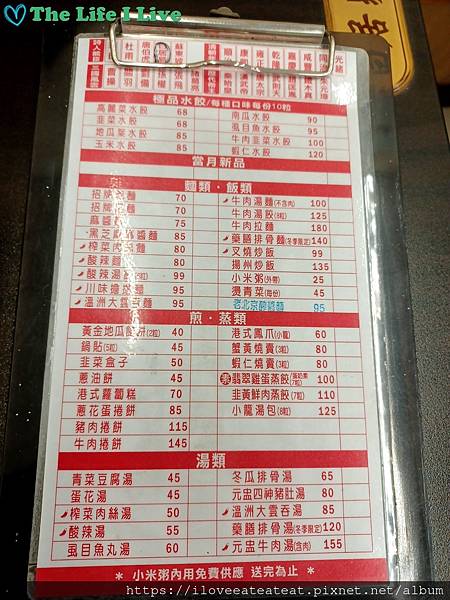 The Life I Live
極品水餃/每種口味每份10粒
高麗菜水餃 68
南瓜水餃 90
韭菜水餃 68
虱目魚水餃 95
地瓜葉水餃 85
牛肉韭菜水餃 100
玉米水餃 95
蝦仁水餃 120
當月新品
麵類・飯類
70
牛肉湯麵(不含肉) 100
70
牛肉湯餃(8粒) 125
75
牛肉拉麵 180
85
藥膳排骨麵(冬季限定) 140
榨菜肉絲麵 80
叉燒炒飯 99
酸辣麵 80
揚州炒飯 95
酸辣湯餃 99
小米粥(外帶) 25
川味擔擔麵 95
燙青菜(每份) 45
溫州大雲吞麵 95
老北京炸醬麵 95
煎・蒸類
黃金地瓜煎餅(2粒) 40
港式鳳爪(小籠) 60
鍋貼(5粒) 45
蟹黃燒賣(3粒) 80
韭菜盒子 50
蝦仁燒賣(3粒) 80
蔥油餅 45
翡翠雞蛋蒸餃 100
港式蘿蔔糕 70
韭黃鮮肉蒸餃(7粒) 110
蔥花蛋捲餅 85
小籠湯包(8粒) 125
豬肉捲餅 115
牛肉捲餅 145
湯類
青菜豆腐湯 45
冬瓜排骨湯 65
蛋花湯 45
元盅四神豬肚湯 80
榨菜肉絲湯 50
溫州大雲吞湯 85
酸辣湯 55
藥膳排骨湯(冬季限定) 120
虱目魚丸湯 60
元盅牛肉湯(含肉) 155
* 小米粥內用免費供應 送完為止 *
https://iloveeateateat.pixnet.net/album